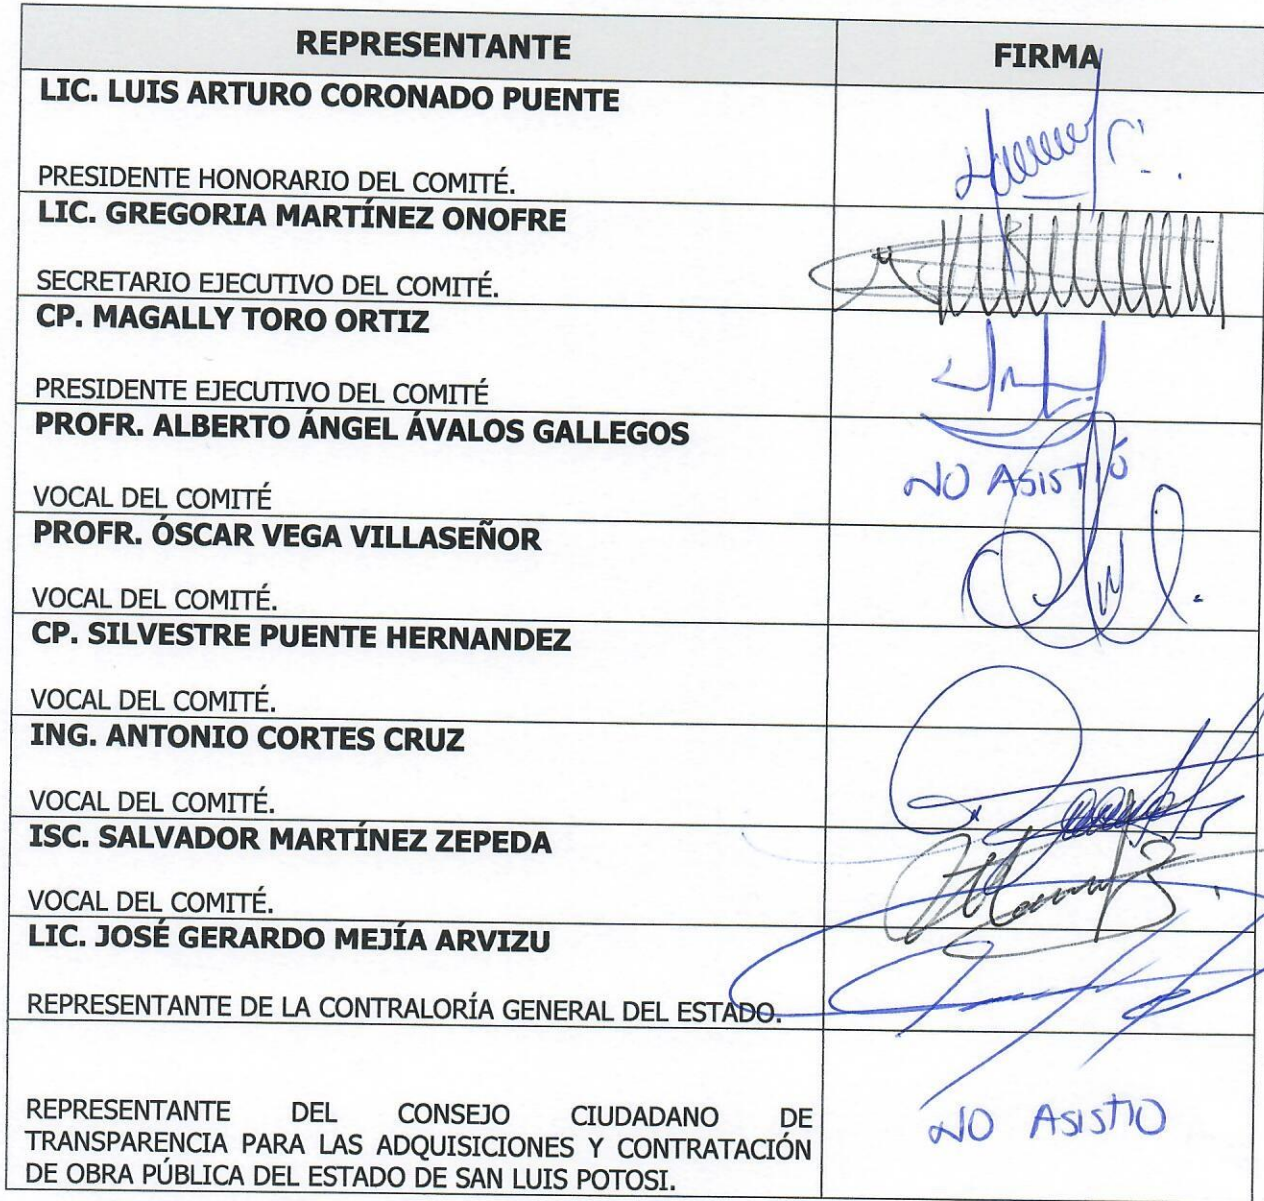 REPRESENTANTE
FIRMA
LIC. LUIS ARTURO CORONADO PUENTE
PRESIDENTE HONORARIO DEL COMITÉ.
LIC. GREGORIA MARTÍNEZ ONOFRE
SECRETARIO EJECUTIVO DEL COMITÉ.
CP. MAGALLY TORO ORTIZ
PRESIDENTE EJECUTIVO DEL COMITÉ
PROFR. ALBERTO ÁNGEL ÁVALOS GALLEGOS
NO ASISTIÓ
VOCAL DEL COMITÉ
PROFR. ÓSCAR VEGA VILLASEÑOR
VOCAL DEL COMITÉ.
CP. SILVESTRE PUENTE HERNANDEZ
VOCAL DEL COMITÉ.
ING. ANTONIO CORTES CRUZ
VOCAL DEL COMITÉ.
ISC. SALVADOR MARTÍNEZ ZEPEDA
VOCAL DEL COMITÉ.
LIC. JOSÉ GERARDO MEJÍA ARVIZU
REPRESENTANTE DE LA CONTRALORÍA GENERAL DEL ESTADO.
REPRESENTANTE DEL CONSEJO CIUDADANO DE
TRANSPARENCIA PARA LAS ADQUISICIONES Y CONTRATACIÓN
DE OBRA PÚBLICA DEL ESTADO DE SAN LUIS POTOSI.
NO ASISTIO